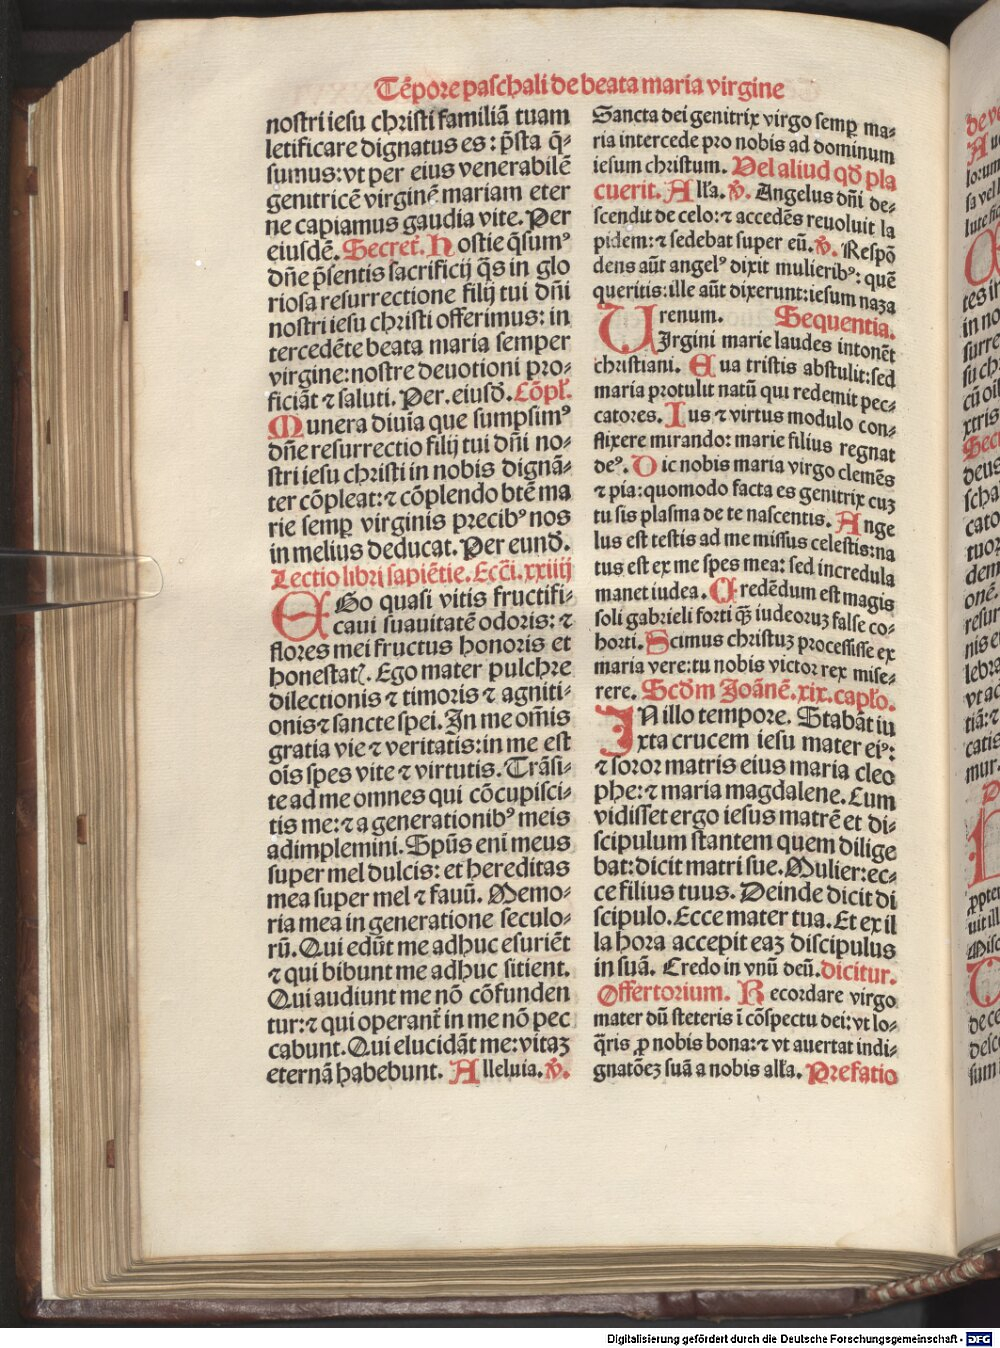 Tēpore paschali de beata maria virgine
nostri iesu christi familiā tuam
letificare dignatus es: p̄sta q̄-
sumus: vt per eius venerabilē
genitricē virginē mariam eter
ne capiamus gaudia vite. Per
eiusdē. Secret̄. Hostie q̄sumꝰ
dn̄e p̄sentis sacrificij q̄s in glo
riosa resurrectione filij tui dn̄i
nostri iesu christi offerimus: in
tercedēte beata maria semper
virgine: nostre deuotioni pro-
ficiāt ⁊ saluti. Per. eiusd̄. Cōpl̄.
Munera diuīa que sumpsimꝰ
dn̄e resurrectio filij tui dn̄i no-
stri iesu christi in nobis dignā-
ter cōpleat: ⁊ cōplendo btē ma
rie semꝑ virginis precibꝰ nos
in melius deducat. Per eund̄.
Lectio libri sapiētie. Ecci. xxiiij
EGo quasi vitis fructifi-
caui suauitatē odoris: ⁊
flores mei fructus honoris et
honestatꝭ. Ego mater pulchre
dilectionis ⁊ timoris ⁊ agniti-
onis ⁊ sancte spei. In me om̄is
gratia vie ⁊ veritatis: in me est
oīs spes vite ⁊ virtutis. Trāsi-
te ad me omnes qui cōcupisci-
tis me: ⁊ a generationibꝰ meis
adimplemini. Spūs enī meus
super mel dulcis: et hereditas
mea super mel ⁊ fauū. Memo-
ria mea in generatione seculo-
rū. Qui edūt me adhuc esuriēt
⁊ qui bibunt me adhuc sitient.
Qui audiunt me nō cōfunden
tur: ⁊ qui operant̄ in me nō pec
cabunt. Qui elucidāt me: vitaꝫ
eternā habebunt. Alleluia. ℣.
Sancta dei genitrix virgo semꝑ ma-
ria intercede pro nobis ad dominum
iesum christum. Vel aliud qd̄ pla
cuerit. Alľa. ℣. Angelus dn̄i de-
scendit de celo: ⁊ accedēs reuoluit la
pidem: ⁊ sedebat super eū. ℣. Respō
dens aūt angelꝰ dixit mulieribꝰ: quē
queritis: ille aūt dixerunt: iesum naza
renum. Sequentia.
VIrgini marie laudes intonēt
christiani. Eua tristis abstulit: sed
maria protulit natū qui redemit pec-
catores. Ius ⁊ virtus modulo con-
flixere mirando: marie filius regnat
deꝰ. Dic nobis maria virgo clemēs
⁊ pia: quomodo facta es genitrix cuꝫ
tu sis plasma de te nascentis. Ange
lus est testis ad me missus celestis: na
tus est ex me spes mea: sed incredula
manet iudea. Credēdum est magis
soli gabrieli forti qꝫ̄ iudeoruꝫ false co-
horti. Scimus christuꝫ processisse ex
maria vere: tu nobis victor rex mise-
rere. Scd̄m Joānē. xix. capľo.
IN illo tempore. Stabāt iu
xta crucem iesu mater eiꝰ:
⁊ soror matris eius maria cleo
phe: ⁊ maria magdalene. Cum
vidisset ergo iesus matrē et di-
scipulum stantem quem dilige
bat: dicit matri sue. Mulier: ec-
ce filius tuus. Deinde dicit di
scipulo. Ecce mater tua. Et ex il
la hora accepit eaꝫ discipulus
in suā. Credo in vnū deū. dicitur.
Offertorium. Recordare virgo
mater dū steteris ī cōspectu dei: vt lo-
q̄ris ꝓ nobis bona: ⁊ vt auertat indi-
gnatōeꝫ suā a nobis alľa. Prefatio
Digitalisierung gefördert durch die Deutsche Forschungsgemeinschaft - DFG